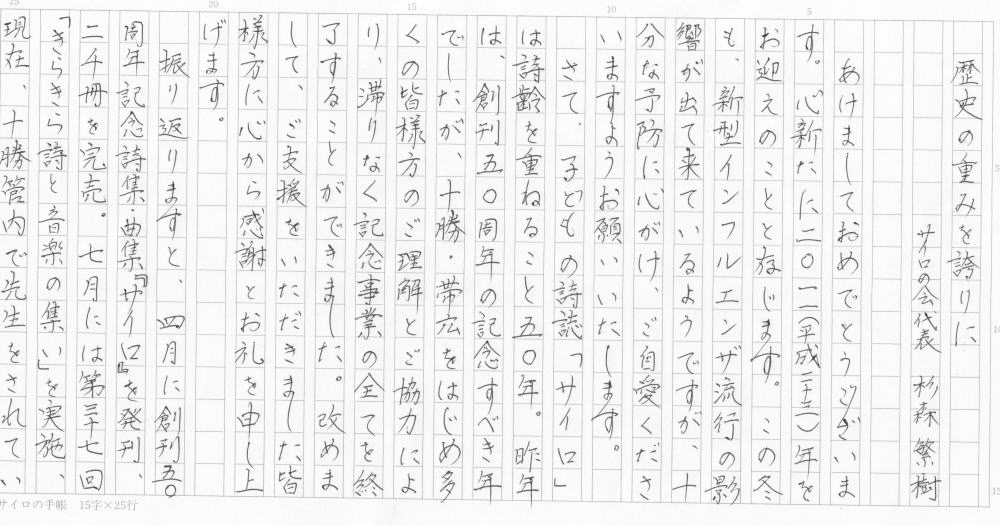 歴史の重みを誇りに
サイロの会代表　杉森繁樹
あけましておめでとうございま
す。心新たに二〇一一（平成二十三）年を
お迎えのことと存じます。この冬
も、新型インフルエンザ流行の影
響が出て来ているようですが、十
分な予防に心がけ、ご自愛くださ
いますようお願いいたします。
さて、子どもの詩誌「サイロ」
は詩齢を重ねること五〇年。昨年
は、創刊五〇周年の記念すべき年
でしたが、十勝・帯広をはじめ多
くの皆様方のご理解とご協力によ
り、滞りなく記念事業の全てを終
了することができました。改めま
して、ご支援をいただきました皆
様方に心から感謝とお礼を申し上
げます。
振り返りますと、四月に創刊五〇
周年記念詩集・曲集『サイロ』を発刊、
二千冊を完売。七月には第三十七回
「きらきら詩と音楽の集い」を実施、
現在、十勝管内で先生をされてい
サイロの手帳　15字×25行
5
10
15
20
25
5
10
15